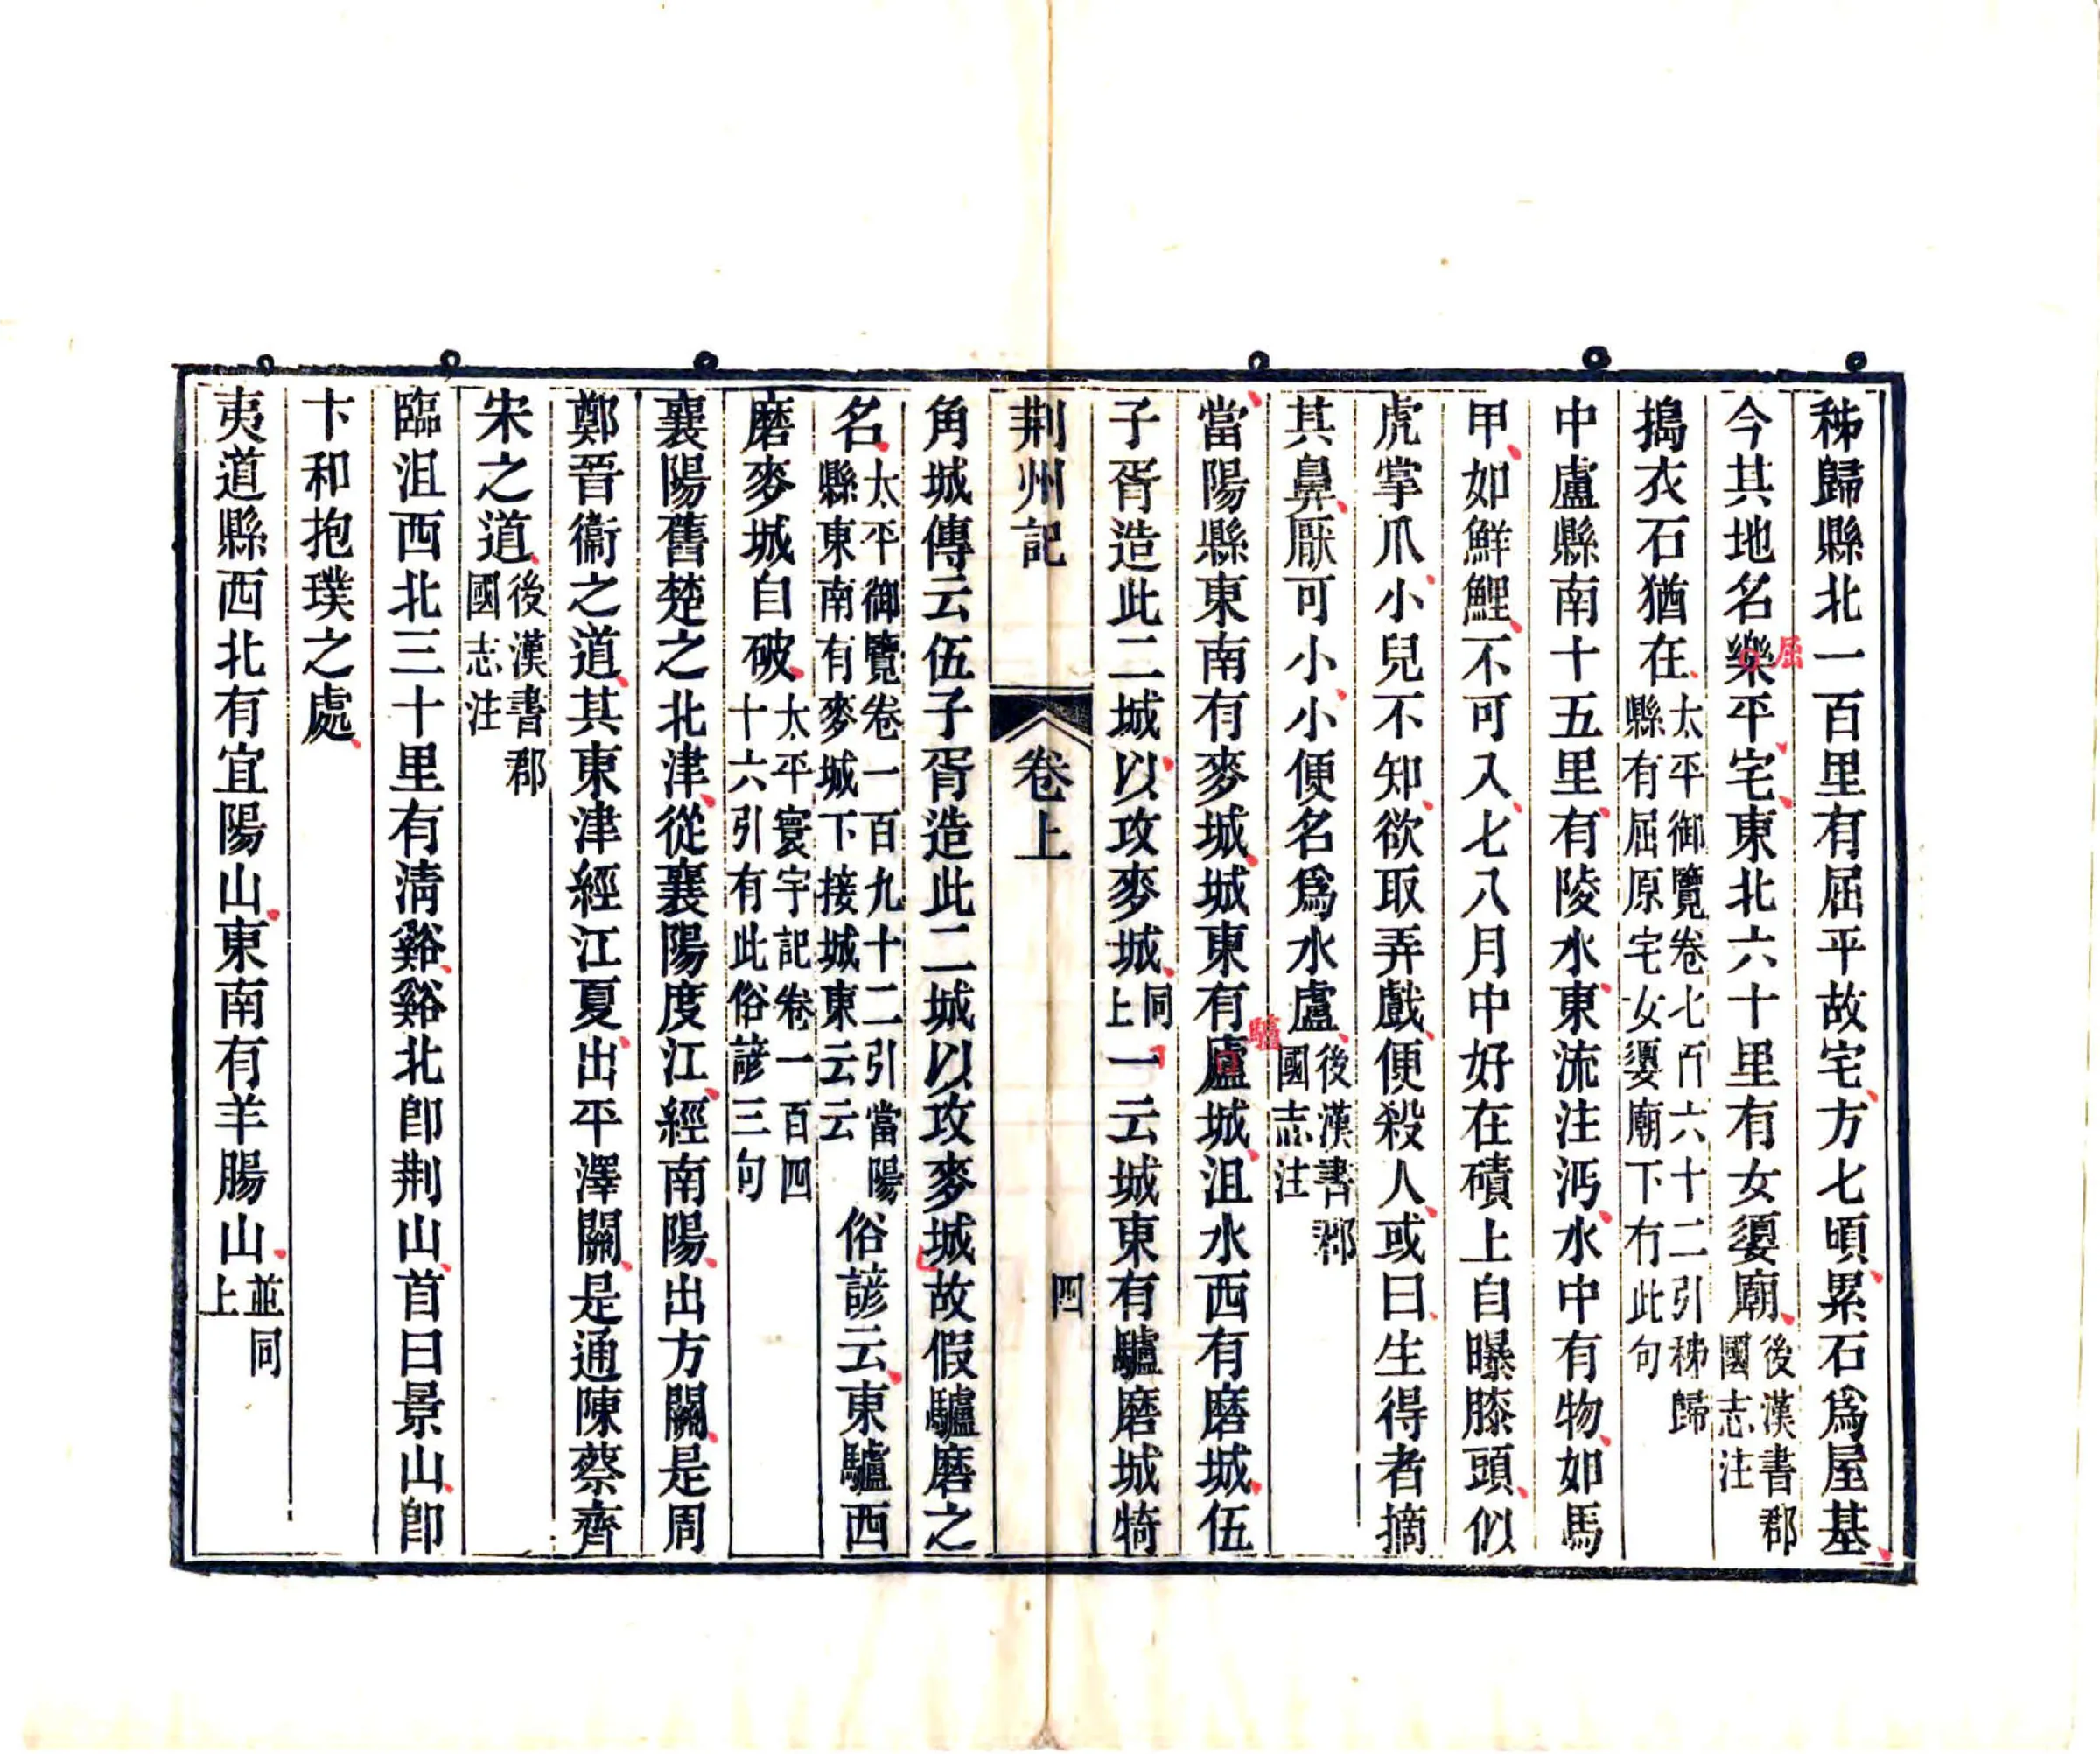 秭歸縣北一百里有屈平故宅方七頃累石爲屋基
今其地名樂平宅東北六十里有女嬃廟後漢書郡國志注
屈
搗衣石猶在太平御覽卷七百六十二引秭歸縣有屈原宅女嬃廟下有此句
中廬縣南十五里有陵水東流注沔水中有物如馬
甲如鮮鯉不可入七八月中好在磧上自曝膝頭似
虎掌爪小兒不知欲取弄戲便殺人或曰生得者摘
其鼻厭可小小便名爲水盧後漢書郡國志注
當陽縣東南有麥城城東有廬城沮水西有磨城伍
驢
子胥造此二城以攻麥城同上一云城東有驢磨城犄
荆州記 卷上 四
角城傳云伍子胥造此二城以攻麥城故假驢磨之
名太平御覽卷一百九十二引當陽縣東南有麥城下接城東云云俗諺云東驢西
磨麥城自破太平寰宇記卷一百四十六引有此俗諺三句
襄陽舊楚之北津從襄陽度江經南陽出方關是周
鄭晉衞之道其東津經江夏出平澤關是通陳蔡齊
宋之道後漢書郡國志注
臨沮西北三十里有淸谿谿北卽荆山首曰景山卽
卞和抱璞之處
夷道縣西北有宜陽山東南有羊腸山並同上